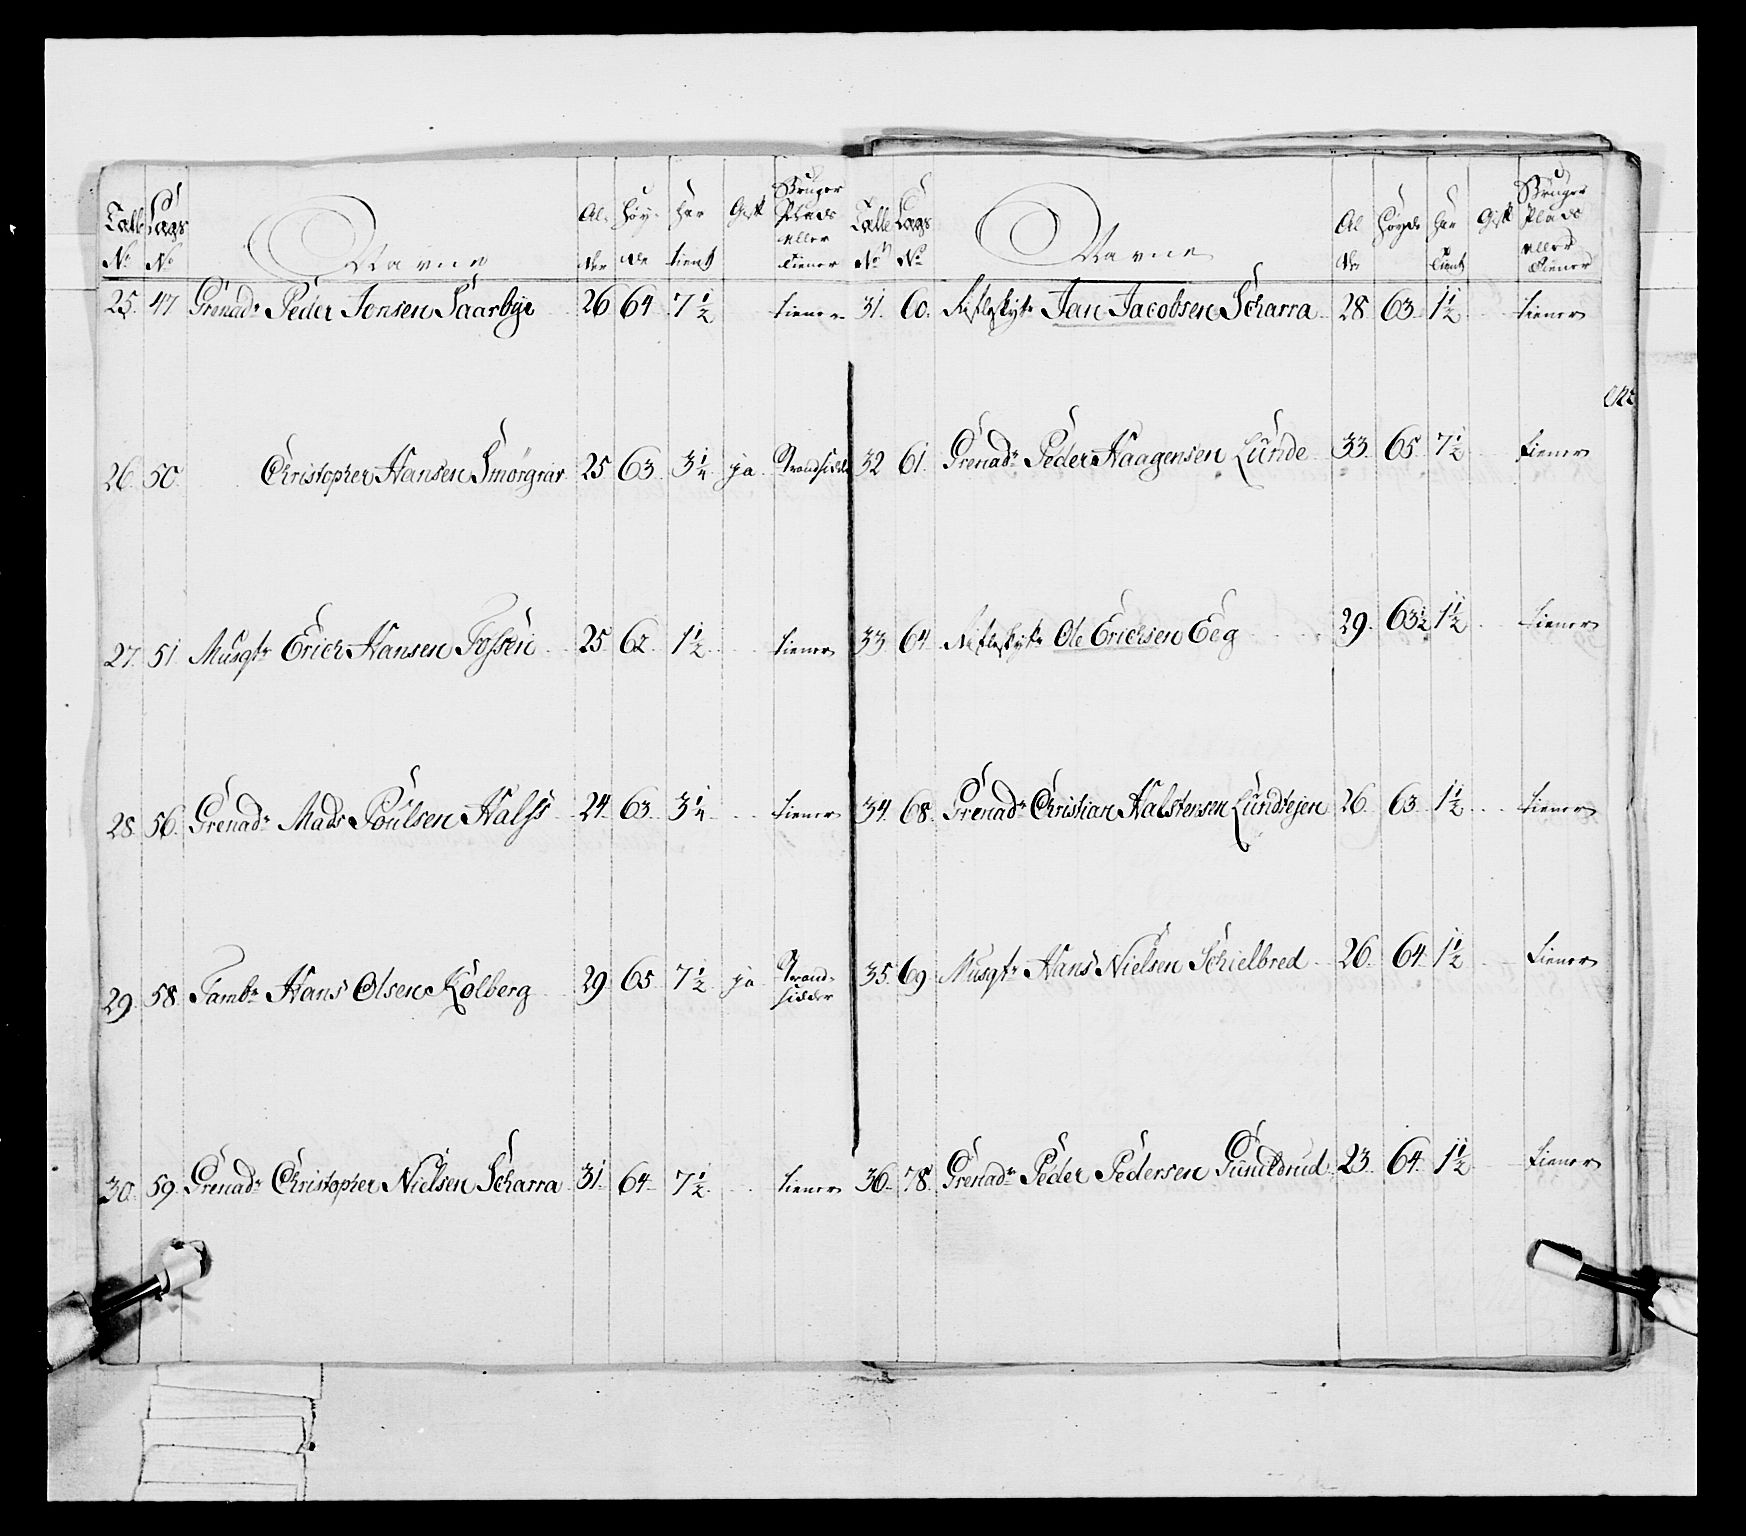 Talle No | Laegs No | Navne | Al- der | Høy- de | har tient | Gift | Bruger Plads eller tiener
25. | 47 | Grenadr Peder Jonsen Saarbye | 26 | 64 | 7 1/2 | | tiener
26. | 50. | Christopher Hansen Smørgrav | 25 | 63 | 3 1/4 | ja | Strandsidder
27. | 51 | Musqtr Erich Hansen Fossen | 25. | 62. | 1 1/2 | | tiener
28. | 56. | Grenadr Mads Poulsen Halss | 24. | 63. | 3 1/4 | | tiener
29. | 58. | Tambr Hans Olsen Kolberg | 29. | 65. | 7 1/2 | ja | Strand- sidder
30. | 59. | Grenadr Christopher Nielsen Scharra | 31. | 64. | 7 1/2 | | tiener
Talle No | Laegs No | Navne | Al der | Høyde | har tient | Gift | Bruger Plads eller tiener
31. | 60. | Rifleskytr Jan Jacobsen Scharra | 28 | 63 | 1 1/2 | | tiener
32 | 61. | Grenadr Peder Haagensen Lunde | 33. | 65. | 7 1/2 | | tiener
33 | 64. | Rifleskytr Ole Erichsen Eeg | 29. | 63 1/2 | 1 1/2 | | tiener
34. | 68. | Grenadr Christian Halstensen Lundtejen | 26. | 63 | 1 1/2 | | tiener
35. | 69. | Musqtr Hans Nielsen Schielbred | 26. | 64 | 1 1/2 | | tiener
36. | 78. | Grenadr Peder Pedersen Gunildrud | 23. | 64. | 1 1/2 | | tiener